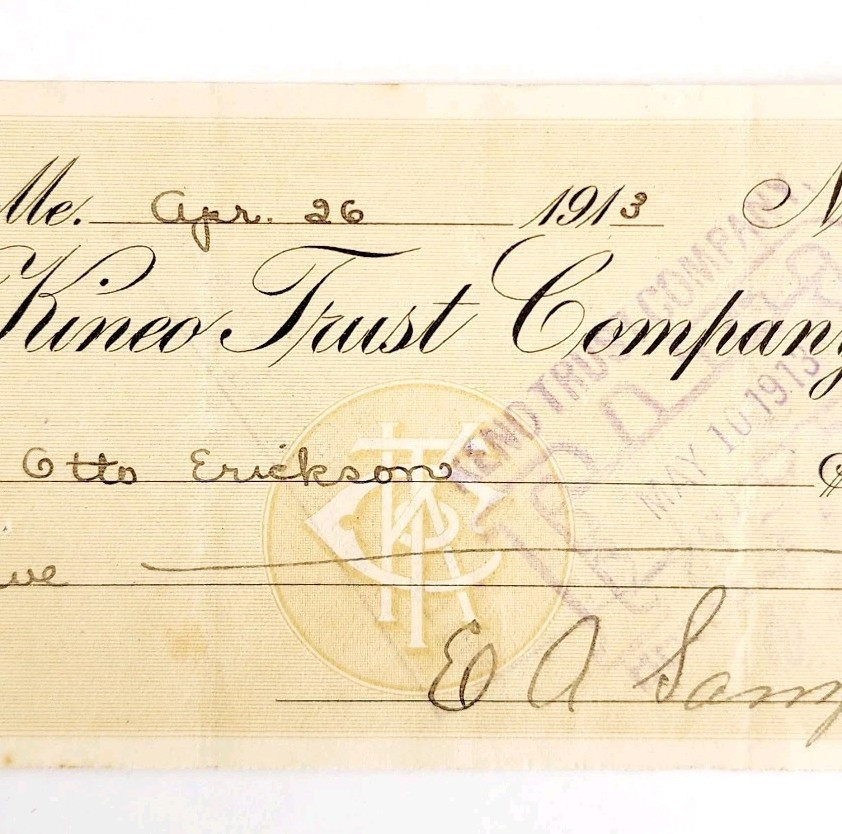 Me. Apr. 26 1913 N
Kineo Trust Company
Otto Erickson $
E A Sam
TRUST COMPANY
PAID
MAY 10 1913
KTC